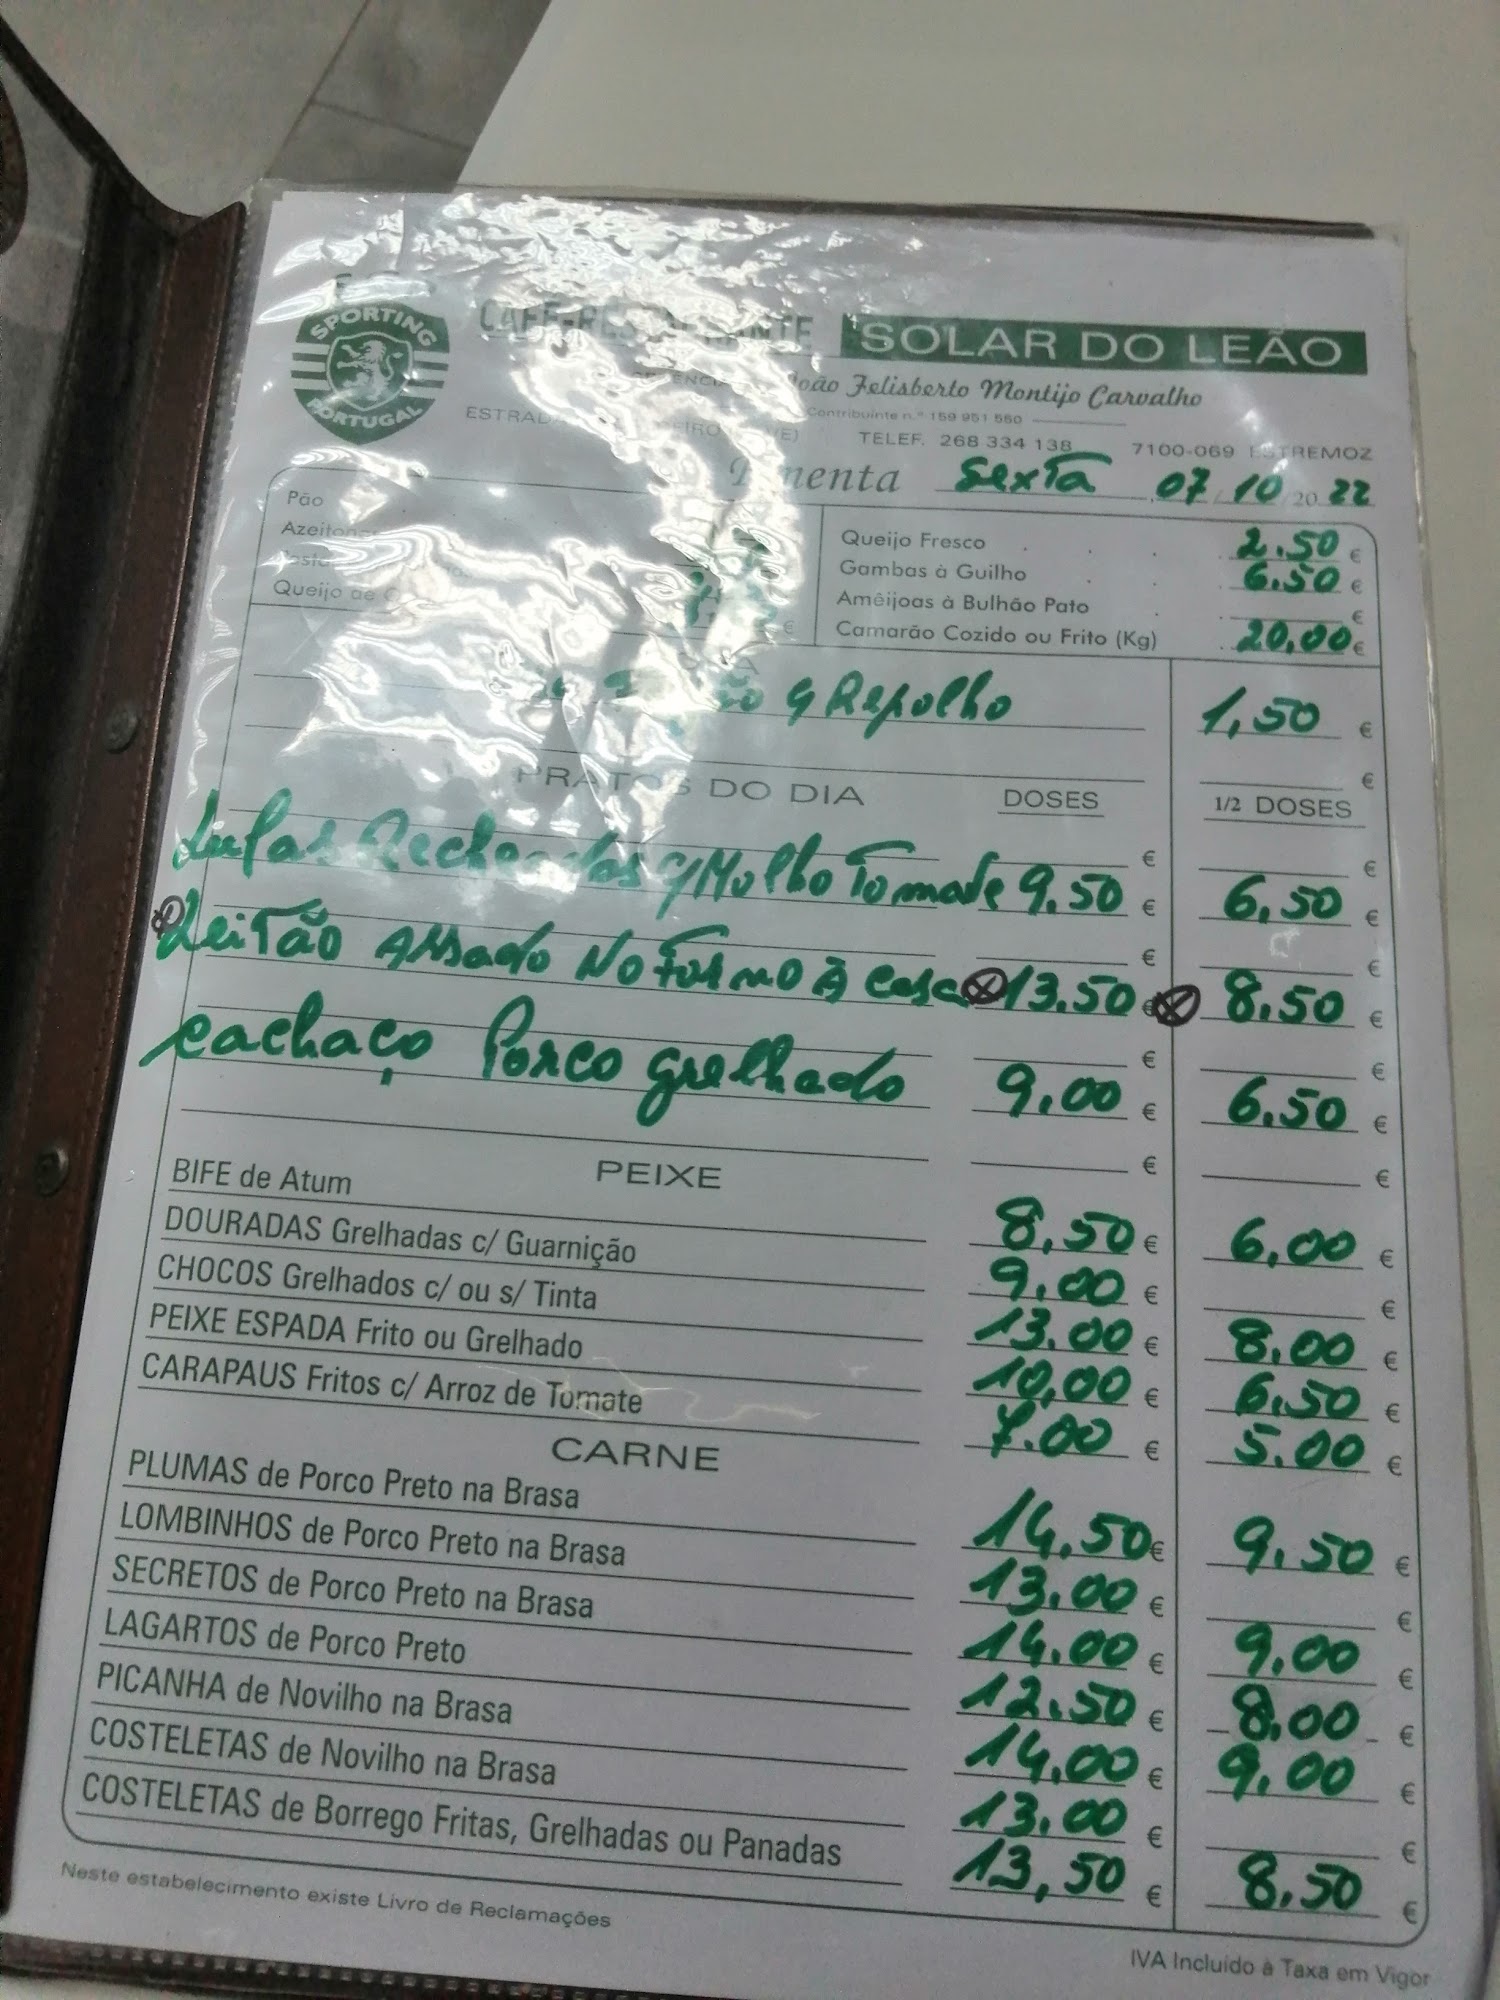 SPORTING
PORTUGAL
CAFÉ-RESTAURANTE SOLAR DO LEÃO
João Felisberto Montijo Carvalho
Contribuinte n.º 159 951 560
TELEF. 268 334 138 7100-069 ESTREMOZ
Ementa Sexta 07 / 10 / 20 22
Pão
Azeitonas
Queijo de
Queijo Fresco 2.50 €
Gambas à Guilho 6.50 €
Amêijoas à Bulhão Pato €
Camarão Cozido ou Frito (Kg) 20,00 €
c/ Repolho 1,50 €
€
PRATOS DO DIA DOSES 1/2 DOSES
€ €
Lulas Recheadas c/ Molho Tomate 9.50 € 6,50 €
€ €
Leitão Assado No Forno À Casa 13.50 € 8.50 €
€ €
Cachaço Porco Grelhado 9.00 € 6.50 €
€ €
PEIXE
BIFE de Atum 8,50 € 6,00 €
DOURADAS Grelhadas c/ Guarnição 9.00 € €
CHOCOS Grelhados c/ ou s/ Tinta 13.00 € 8.00 €
PEIXE ESPADA Frito ou Grelhado 10,00 € 6.50 €
CARAPAUS Fritos c/ Arroz de Tomate 7.00 € 5.00 €
CARNE
PLUMAS de Porco Preto na Brasa 14.50 € 9.50 €
LOMBINHOS de Porco Preto na Brasa 13.00 € €
SECRETOS de Porco Preto na Brasa 14.00 € 9.00 €
LAGARTOS de Porco Preto 12.50 € 8.00 €
PICANHA de Novilho na Brasa 14,00 € 9.00 €
COSTELETAS de Novilho na Brasa 13.00 € €
COSTELETAS de Borrego Fritas, Grelhadas ou Panadas 13,50 € 8.50 €
Neste estabelecimento existe Livro de Reclamações
IVA Incluido à Taxa em Vigor